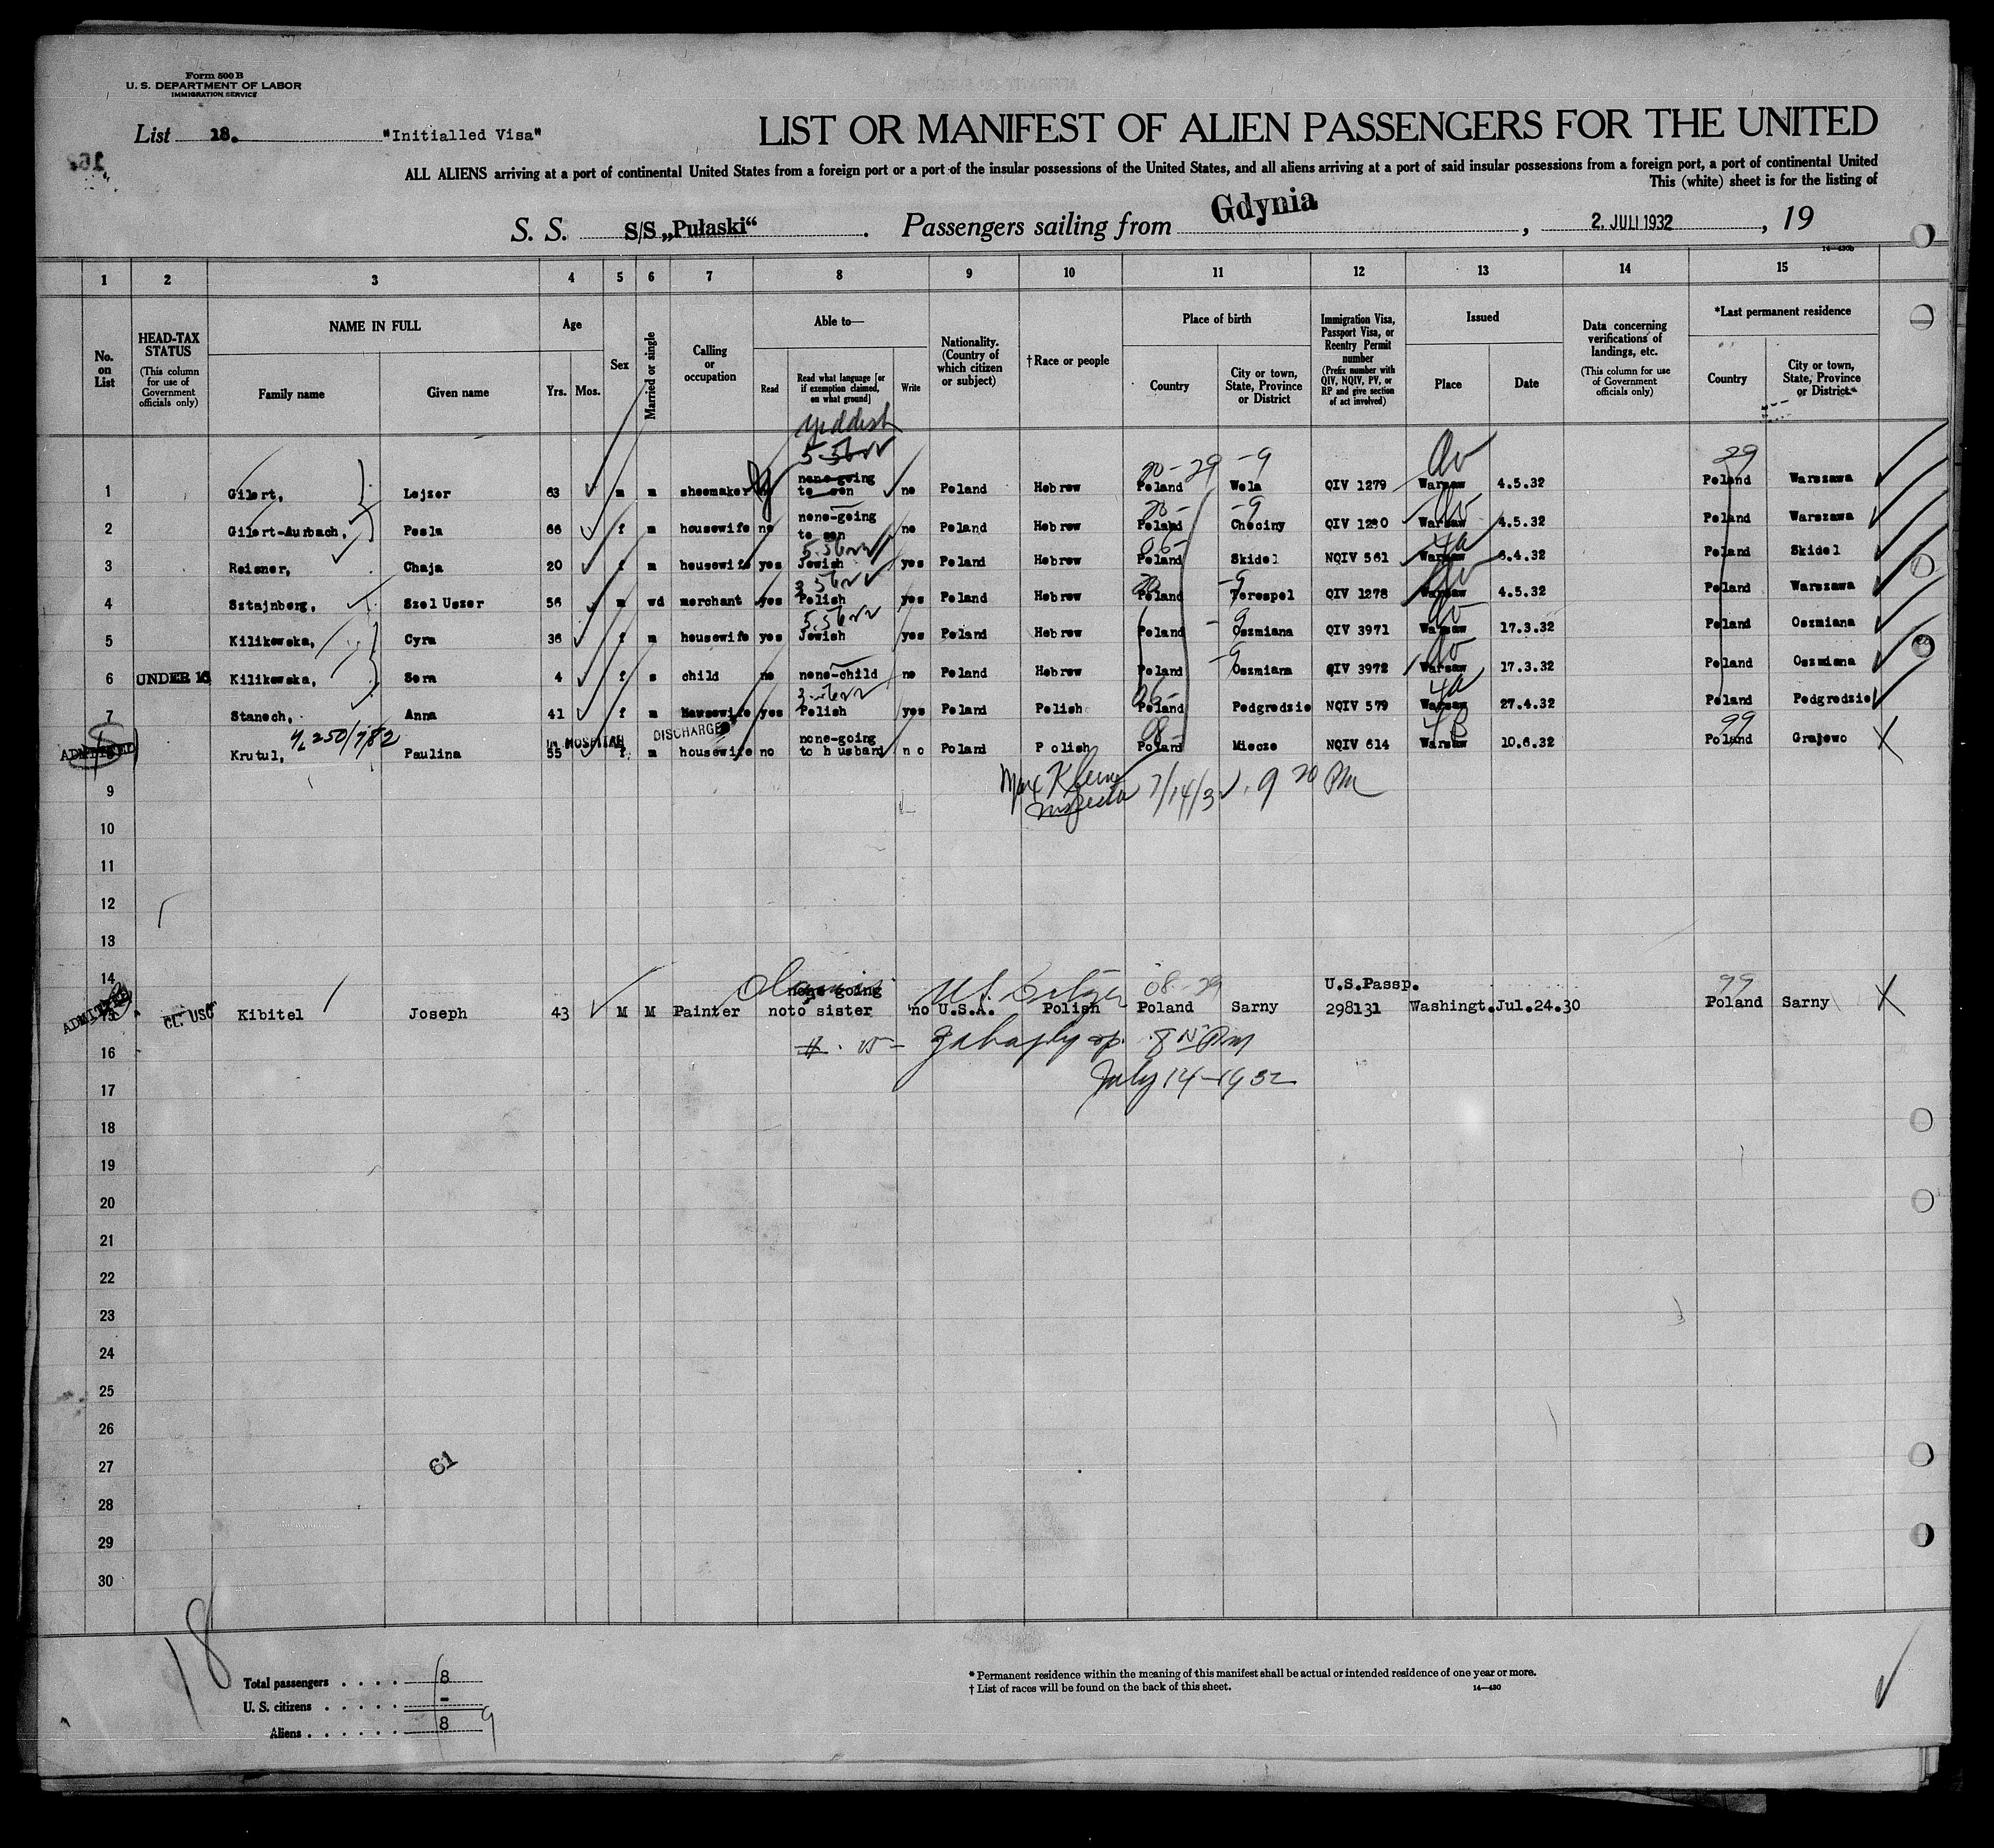 Form 500 B
U. S. DEPARTMENT OF LABOR
IMMIGRATION SERVICE
List 18. "Initialled Visa"
LIST OR MANIFEST OF ALIEN PASSENGERS FOR THE UNITED
ALL ALIENS arriving at a port of continental United States from a foreign port or a port of the insular possessions of the United States, and all aliens arriving at a port of said insular possessions from a foreign port, a port of continental United
This (white) sheet is for the listing of
S. S. S/S „Pułaski“. Passengers sailing from Gdynia, 2. JULI 1932, 19
14—430b
1 2 3 4 5 6 7 8 9 10 11 12 13 14 15
No. on List
HEAD-TAX STATUS (This column for use of Government officials only)
NAME IN FULL
Family name
Given name
Age
Yrs. Mos.
Sex
Married or single
Calling or occupation
Able to—
Read
Read what language [or if exemption claimed, on what ground]
Write
Nationality. (Country of which citizen or subject)
† Race or people
Place of birth
Country
City or town, State, Province or District
Immigration Visa, Passport Visa, or Reentry Permit number (Prefix number with QIV, NQIV, PV, or RP and give section of act involved)
Issued
Place
Date
Data concerning verifications of landings, etc. (This column for use of Government officials only)
*Last permanent residence
Country
City or town, State, Province or District
Yiddish
1 Gilert, Lejzer 63 m m shoemaker none-going to son no Poland Hebrew Poland Wola QIV 1279 Warsaw 4.5.32 Poland Warszawa
2 Gilert-Aurbach, Pesla 66 f m housewife no none-going to son no Poland Hebrew Poland Checiny QIV 1280 Warsaw 4.5.32 Poland Warszawa
3 Reisner, Chaja 20 f m housewife yes Jewish yes Poland Hebrew Poland Skidel NQIV 561 Warsaw 6.4.32 Poland Skidel
4 Sztajnberg, Szol Uszer 56 m wd merchant yes Polish yes Poland Hebrew Poland Terespol QIV 1278 Warsaw 4.5.32 Poland Warszawa
5 Kilikowska, Cyra 36 f m housewife yes Jewish yes Poland Hebrew Poland Oszmiana QIV 3971 Warsaw 17.3.32 Poland Oszmiana
6 UNDER 16 Kilikowska, Sora 4 f s child no none-child no Poland Hebrew Poland Oszmiana QIV 3972 Warsaw 17.3.32 Poland Oszmiana
7 Stanoch, Anna 41 f m Housewife yes Polish yes Poland Polish Poland Podgrodzie NQIV 579 Warsaw 27.4.32 Poland Podgrodzie
250/782 IN HOSPITAL DISCHARGED
ADMITTED Krutul, Paulina 55 f m housewife no none-going to husband no Poland Polish Poland Miecze NQIV 614 Warsaw 10.6.32 Poland Grajewo
9 7/14/32. 9 20 PM
Inspector
10
11
12
13
14
ADMITTED 15 CL. USC Kibitel Joseph 43 M M Painter no none going to sister no U.S.A. Polish Poland Sarny U.S.Passp. 298131 Washingt. Jul.24.30 Poland Sarny
16
July 14-1932
17
18
19
20
21
22
23
24
25
26
27
61
28
29
30
18
Total passengers . . . . 8
U. S. citizens . . . . . -
Aliens . . . . . . 8 9
* Permanent residence within the meaning of this manifest shall be actual or intended residence of one year or more.
† List of races will be found on the back of this sheet.
14—430